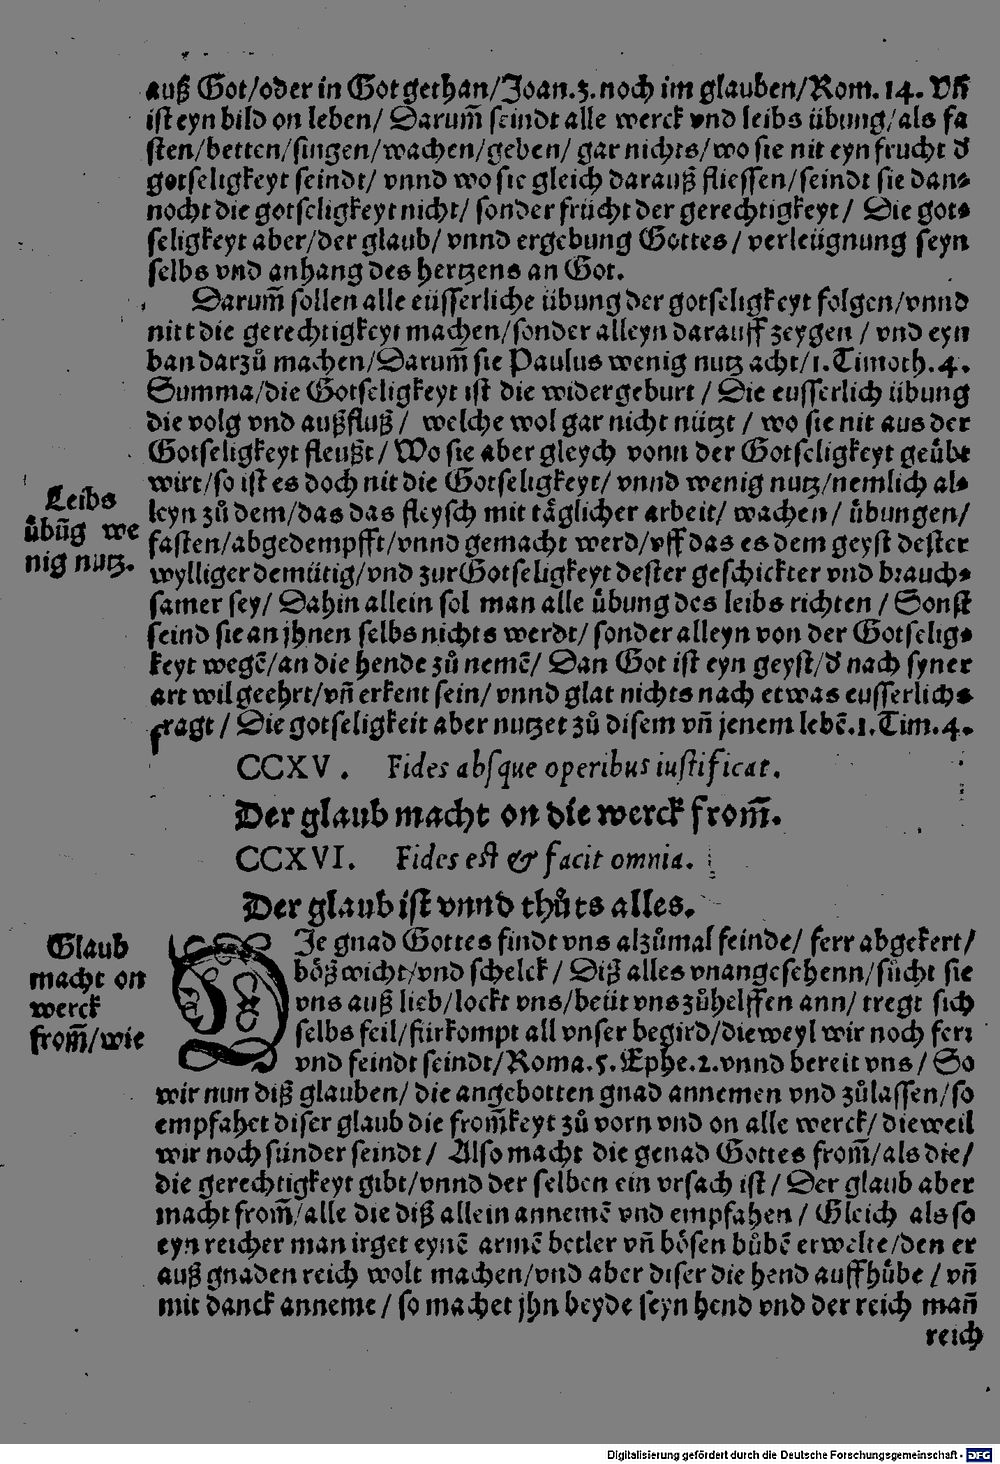 auß Got/oder in Got gethan/Joan.3. noch im glauben/Rom. 14. Vñ
ist eyn bild on leben/ Darum̃ seindt alle werck vnd leibs übung/als fa
sten/betten/singen/wachen/geben/ gar nichts/wo sie nit eyn frucht d̕
gotseligkeyt seindt/ vnnd wo sie gleich darauß fliessen/seindt sie dan⸗
nocht die gotseligkeyt nicht/ sonder frücht der gerechtigkeyt/ Die got⸗
seligkeyt aber/der glaub/ vnnd ergebung Gottes/ verleügnung seyn
selbs vnd anhang des hertzens an Got.
Darum̃ sollen alle eüsserliche übung der gotseligkeyt folgen/vnnd
nitt die gerechtigkeyt machen/sonder alleyn darauff zeygen / vnd eyn
ban darzů machen/Darum̃ sie Paulus wenig nutz acht/1. Timoth. 4.
Summa/die Gotseligkeyt ist die widergeburt / Die eusserlich übung
die volg vnd außfluß / welche wol gar nicht nützt / wo sie nit aus der
Gotseligkeyt fleußt / Wo sie aber gleych vonn der Gotseligkeyt geübt
wirt/so ist es doch nit die Gotseligkeyt/ vnnd wenig nutz/nemlich al⸗
leyn zů dem/das das fleysch mit täglicher arbeit/ wachen/ übungen/
fasten/abgedempfft/vnnd gemacht werd/vff das es dem geyst dester
wylliger demütig/vnd zur Gotseligkeyt dester geschickter vnd brauch⸗
samer sey/ Dahin allein sol man alle übung des leibs richten / Sonst
seind sie an jhnen selbs nichts werdt/ sonder alleyn von der Gotselig⸗
keyt wegē/an die hende zů nemē/ Dan Got ist eyn geyst/d̕ nach syner
art wil geehrt/vñ erkent sein/ vnnd glat nichts nach etwas eusserlichs
fragt / Die gotseligkeit aber nutzet zů disem vñ jenem lebē.1. Tim. 4.
Leibs
übũg we
nig nutz.
CCXV. Fides absque operibus iustificat.
Der glaub macht on die werck from̃.
CCXVI. Fides est & facit omnia.
Der glaub ist vnnd thůts alles.
Glaub
macht on
werck
from̃/wie
DJe gnad Gottes findt vns alzůmal feinde/ ferr abgekert/
bößwicht/vnd schelck / Diß alles vnangesehenn/sücht sie
vns auß lieb/lockt vns/beüt vns zůhelffen ann/ tregt sich
selbs feil/fürkompt all vnser begird/dieweyl wir noch ferr
vnd feindt seindt/Roma. 5. Ephe. 2. vnnd bereit vns / So
wir nun diß glauben/ die angebotten gnad annemen vnd zůlassen/so
empfahet diser glaub die from̃keyt zů vorn vnd on alle werck/ dieweil
wir noch sünder seindt / Also macht die genad Gottes from̃/als die/
die gerechtigkeyt gibt/vnnd der selben ein vrsach ist / Der glaub aber
macht from̃/alle die diß allein annemē vnd empfahen / Gleich als so
eyn reicher man irget eynē armē betler vñ bösen bůbē erwelte/den er
auß gnaden reich wolt machen/vnd aber diser die hend auffhübe / vñ
mit danck anneme / so machet jhn beyde seyn hend vnd der reich mañ
reich
Digitalisierung gefördert durch die Deutsche Forschungsgemeinschaft - DFG